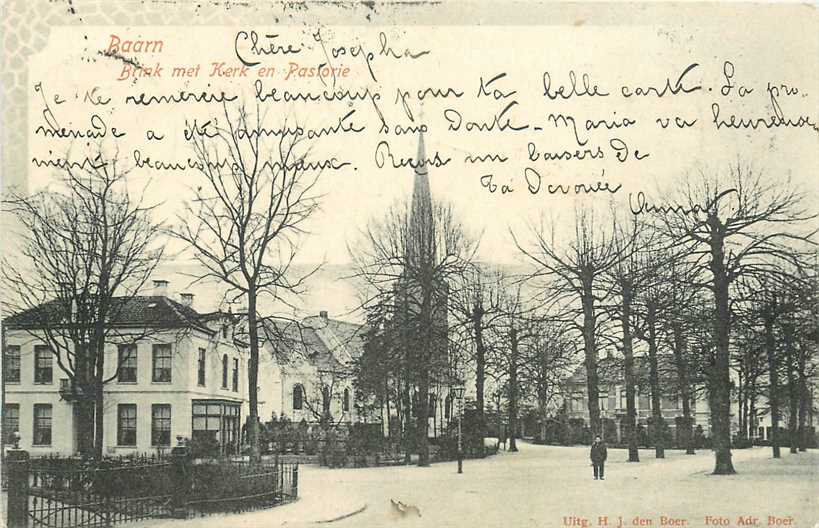 Chère Josepha
Baarn
Brink met Kerk en Pastorie
Je te remercie beaucoup pour ta belle carte. La pro-
menade a été amusante sans doute. Maria va heureuse-
ment beaucoup mieux. Reçois un baisers de
ta Dévouée
Anna
Uitg. H. J. den Boer. Foto Adr. Boer.